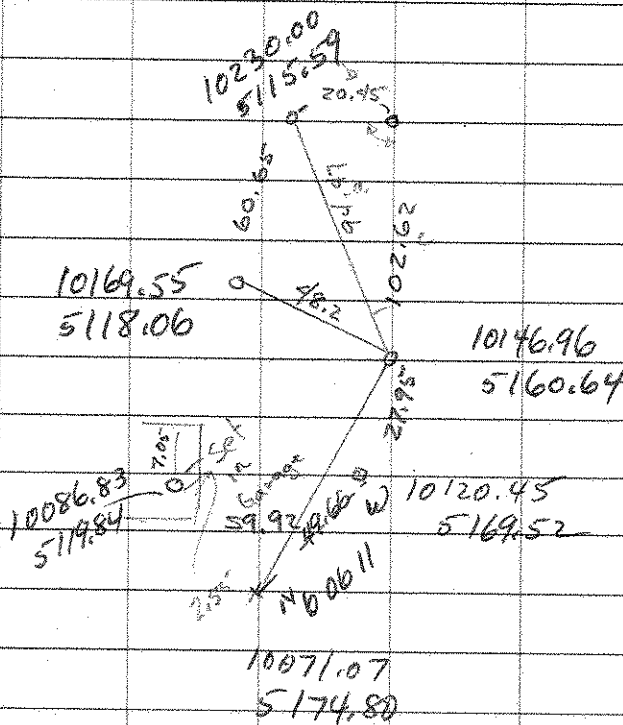 10230.00
5115.59
20.45
60.65
94.67
102.62
10169.55
5118.06
48.2
10146.96
5160.64
27.95
7.05
Set
in
Garage
10086.83
5119.84
59.92
49.66
W
10120.45
5169.52
2.55
10071.07
5174.80